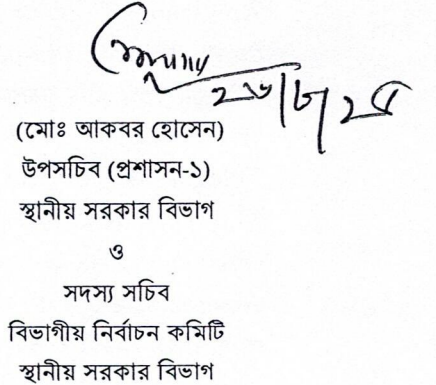 (মোঃ আকবর হোসেন)
উপসচিব (প্রশাসন-১)
স্থানীয় সরকার বিভাগ
ও
সদস্য সচিব
বিভাগীয় নির্বাচন কমিটি
স্থানীয় সরকার বিভাগ